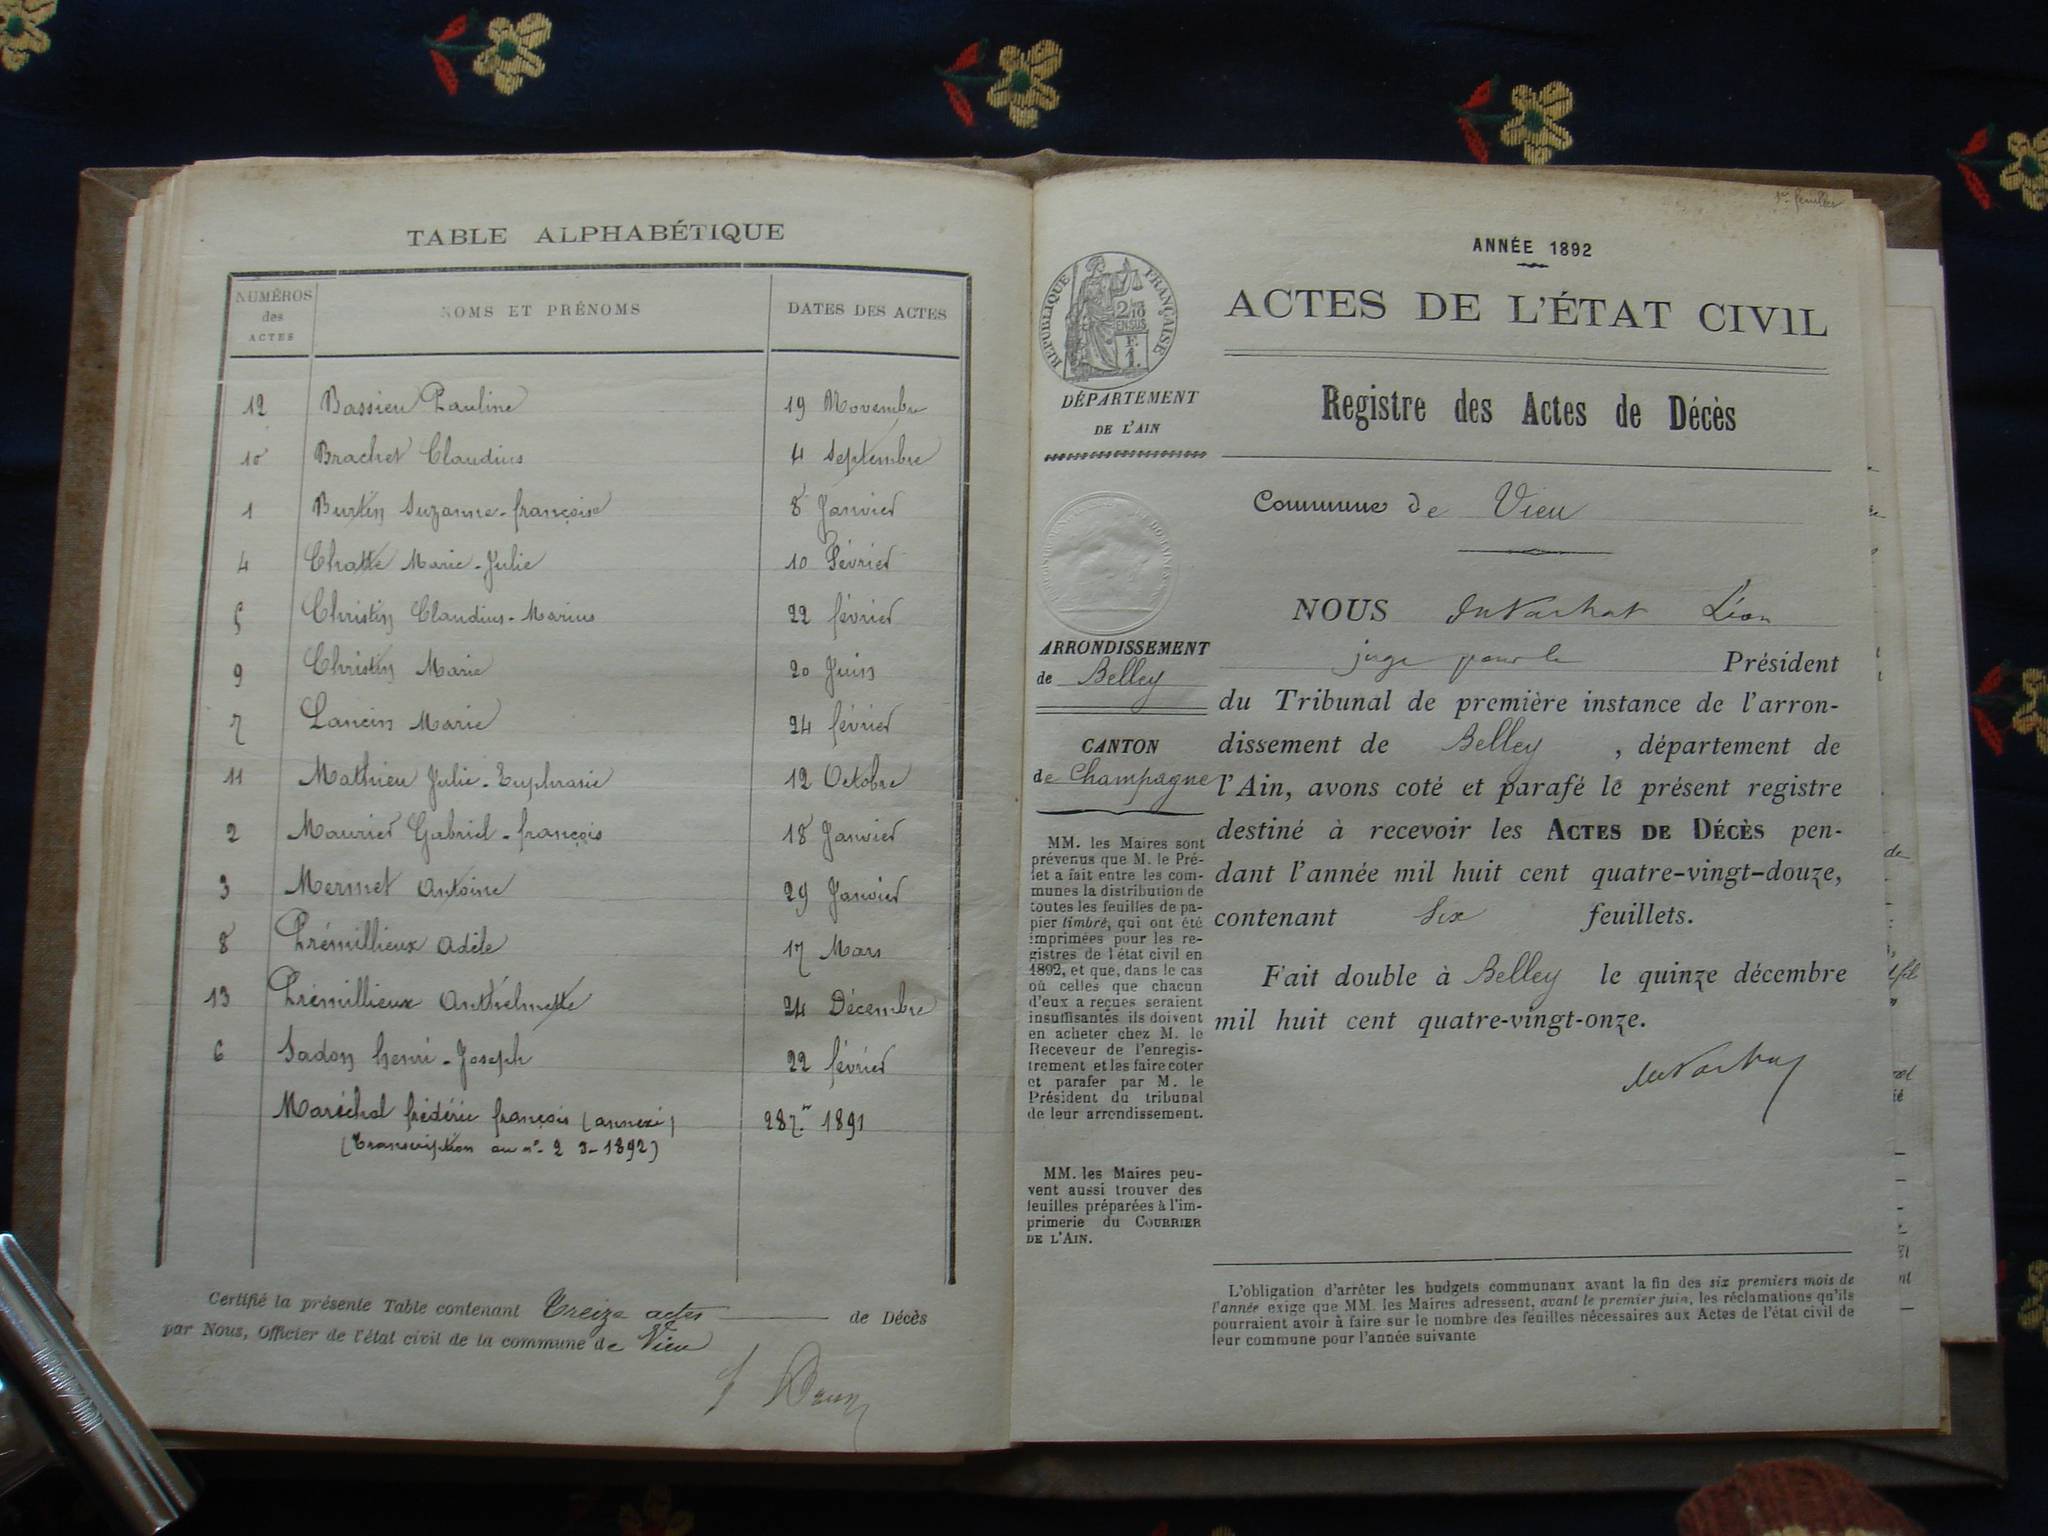 TABLE ALPHABÉTIQUE
NUMÉROS des ACTES NOMS ET PRÉNOMS DATES DES ACTES
12 Bassieu Pauline 19 Novembre
10 Brachet Claudius 4 Septembre
1 Burtin Suzanne-françoise 8 Janvier
4 Chatte Marie-Julie 10 Février
5 Christin Claudius-Marius 22 février
9 Christin Marie 20 Juin
7 Lancin Marie 24 février
11 Mathieu Julie-Euphrasie 12 Octobre
2 Maurier Gabriel-françois 18 Janvier
3 Mermet Antoine 29 Janvier
8 Prémillieux Adèle 17 Mars
13 Prémillieux Anthelmette 24 Décembre
6 Sadon henri-Joseph 22 février
Maréchal frédéric françois (annexé) 28 1891
(Transcription au n° 2 1892)
Certifié la présente Table contenant Treize actes de Décès
par Nous, Officier de l'état civil de la commune de Vieu
1er feuillet
ANNÉE 1892
RÉPUBLIQUE FRANÇAISE
2/10 EN SUS
F. 1.
ACTES DE L'ÉTAT CIVIL
DÉPARTEMENT
DE L'AIN
Registre des Actes de Décès
Commune de Vieu
ARRONDISSEMENT
de Belley
CANTON
de Champagne
MM. les Maires sont
prévenus que M. le Pré-
fet a fait entre les com-
munes la distribution de
toutes les feuilles de pa-
pier timbré, qui ont été
imprimées pour les re-
gistres de l'état civil en
1892, et que, dans le cas
où celles que chacun
d'eux a reçues seraient
insuffisantes ils doivent
en acheter chez M. le
Receveur de l'enregis-
trement et les faire coter
et parafer par M. le
Président du tribunal
de leur arrondissement.
MM. les Maires peu-
vent aussi trouver des
feuilles préparées à l'im-
primerie du COURRIER
DE L'AIN.
NOUS Léon
juge pour le Président
du Tribunal de première instance de l'arron-
dissement de Belley, département de
l'Ain, avons coté et parafé le présent registre
destiné à recevoir les ACTES DE DÉCÈS pen-
dant l'année mil huit cent quatre-vingt-douze,
contenant Six feuillets.
Fait double à Belley le quinze décembre
mil huit cent quatre-vingt-onze.
L'obligation d'arrêter les budgets communaux avant la fin des six premiers mois de
l'année exige que MM. les Maires adressent, avant le premier juin, les réclamations qu'ils
pourraient avoir à faire sur le nombre des feuilles nécessaires aux Actes de l'état civil de
leur commune pour l'année suivante